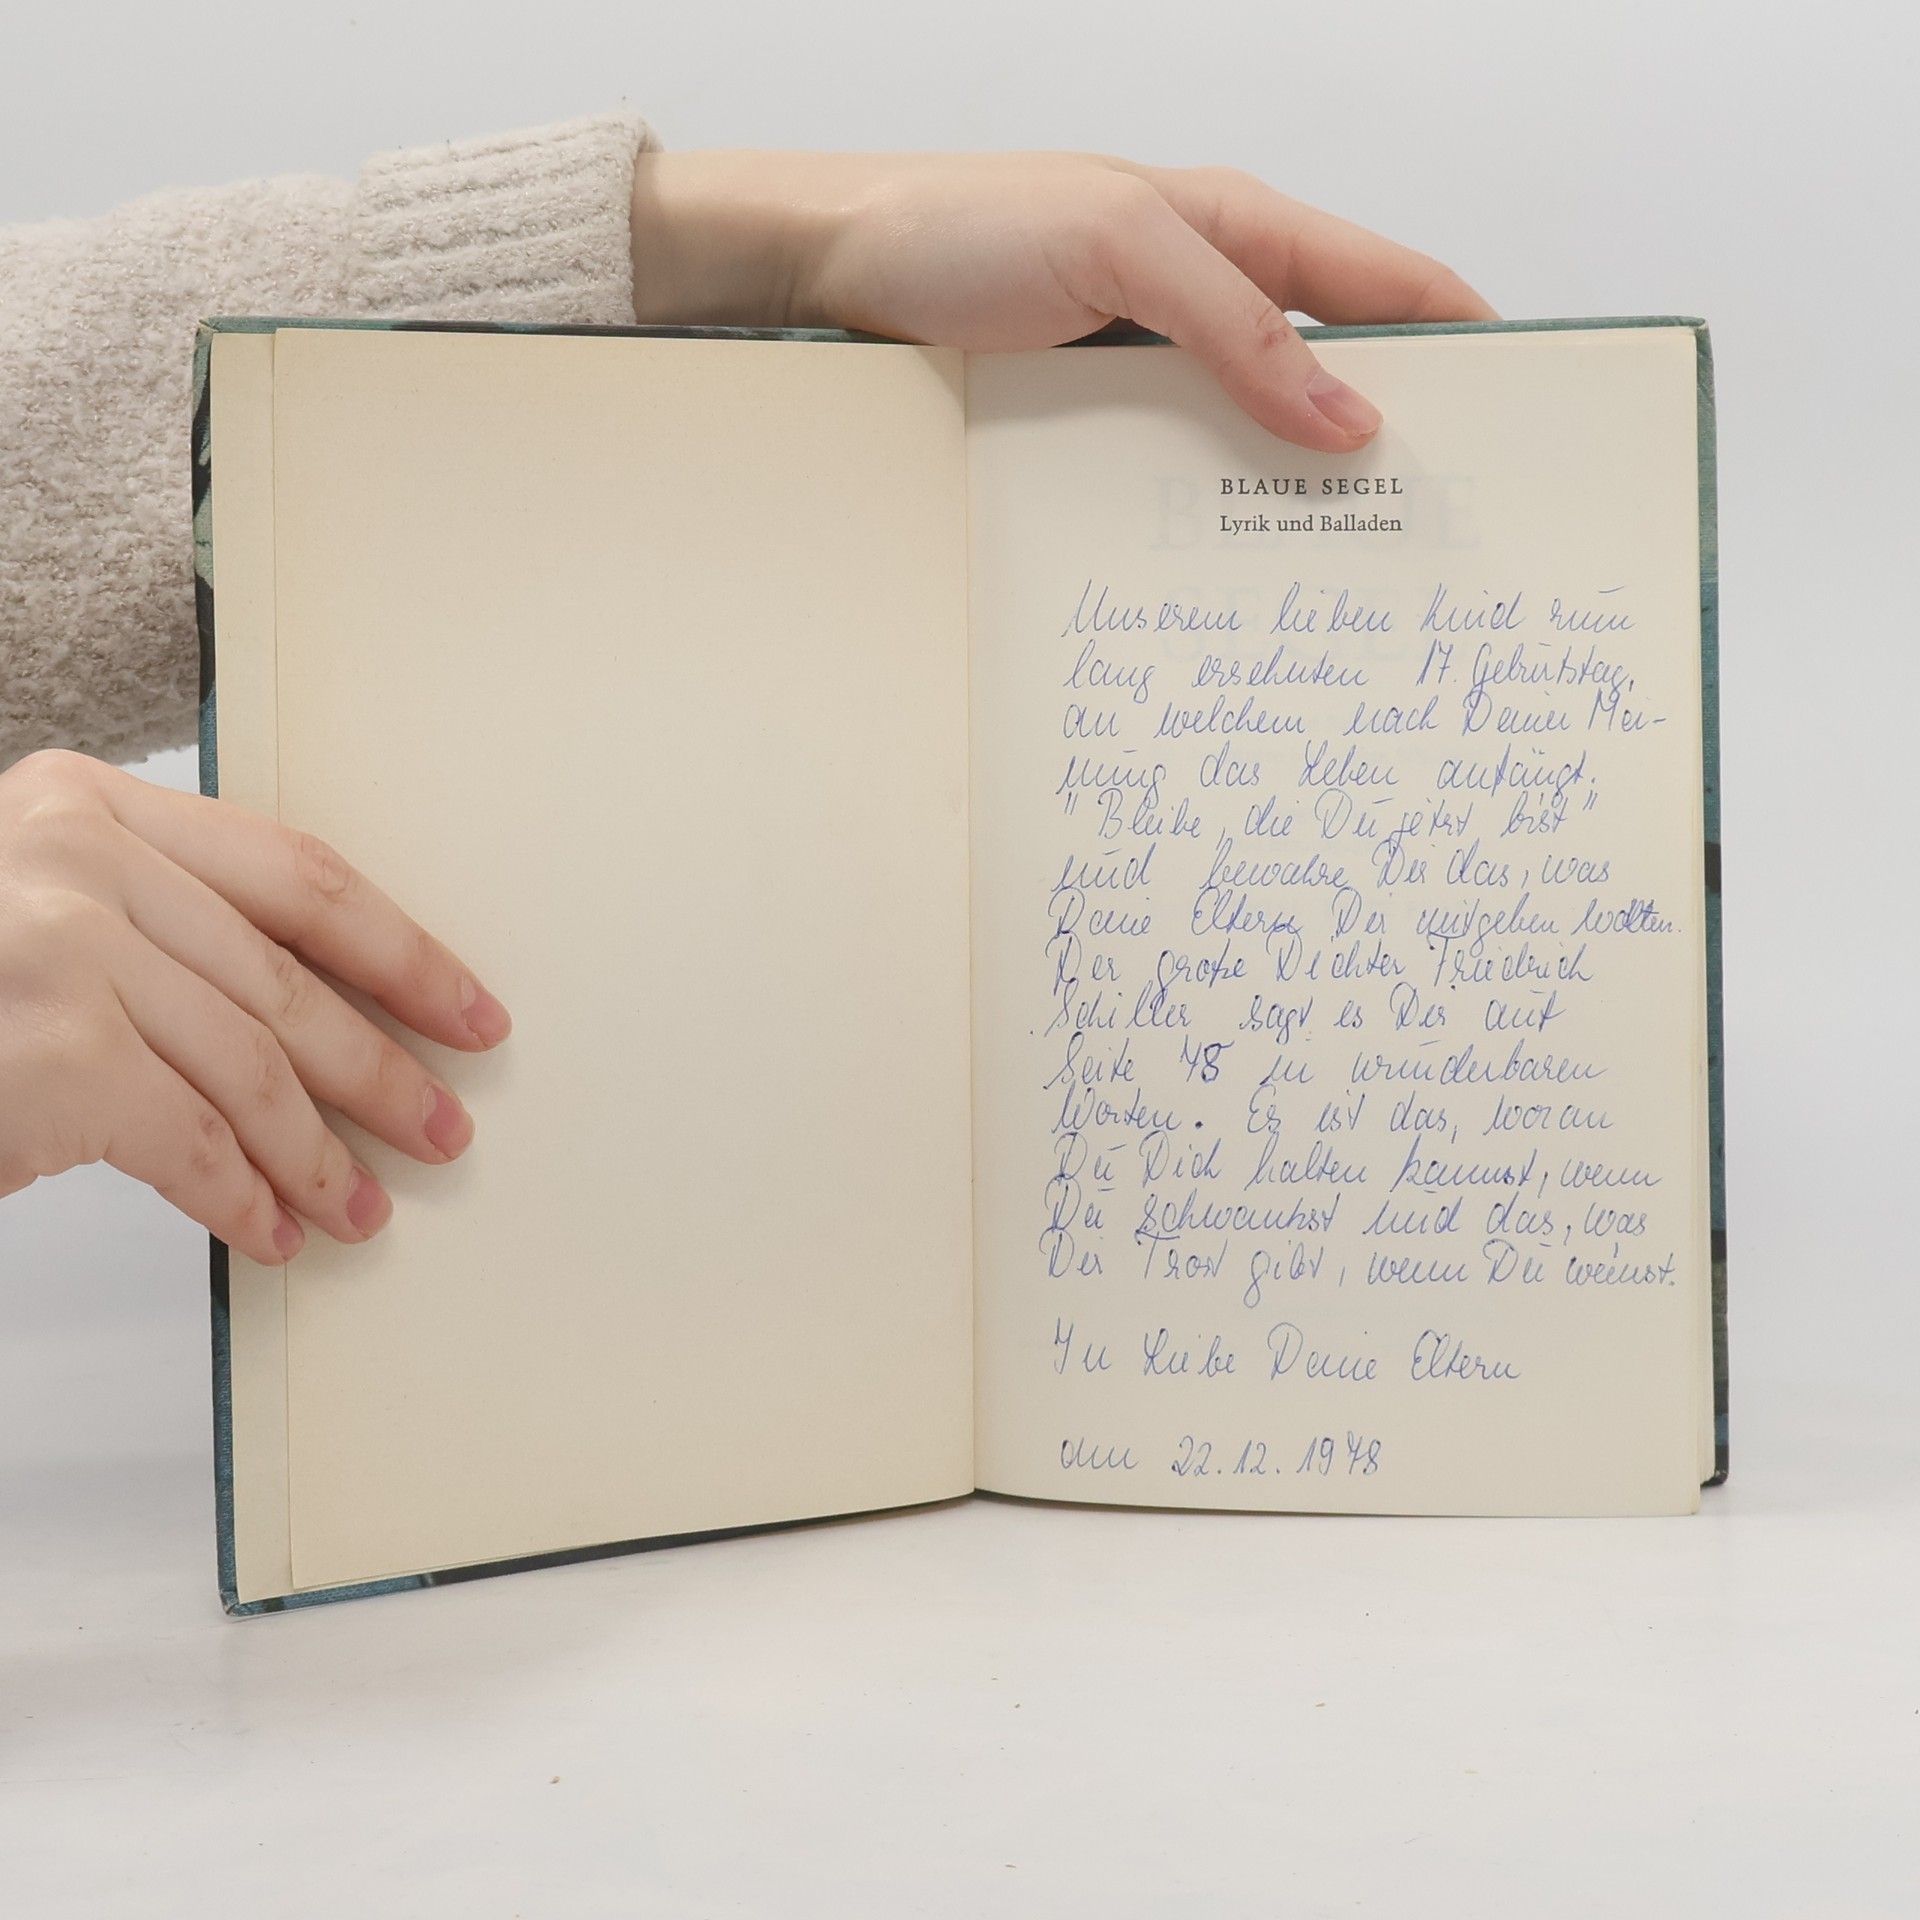 BLAUE SEGEL
Lyrik und Balladen
Unserem lieben Kind zum
lang ersehnten 17. Geburtstag,
an welchem nach Deiner Mei-
nung das Leben anfängt.
"Bleibe, die Du jetzt bist"
und bewahre Dir das, was
Deine Eltern Dir mitgeben wollten.
Der große Dichter Friedrich
Schiller sagt es Dir auf
Seite 78 in wunderbaren
Worten. Es ist das, woran
Du Dich halten kannst, wenn
Du schwankst und das, was
Dir Trost gibt, wenn Du weinst.
In Liebe Deine Eltern
am 22.12.1978